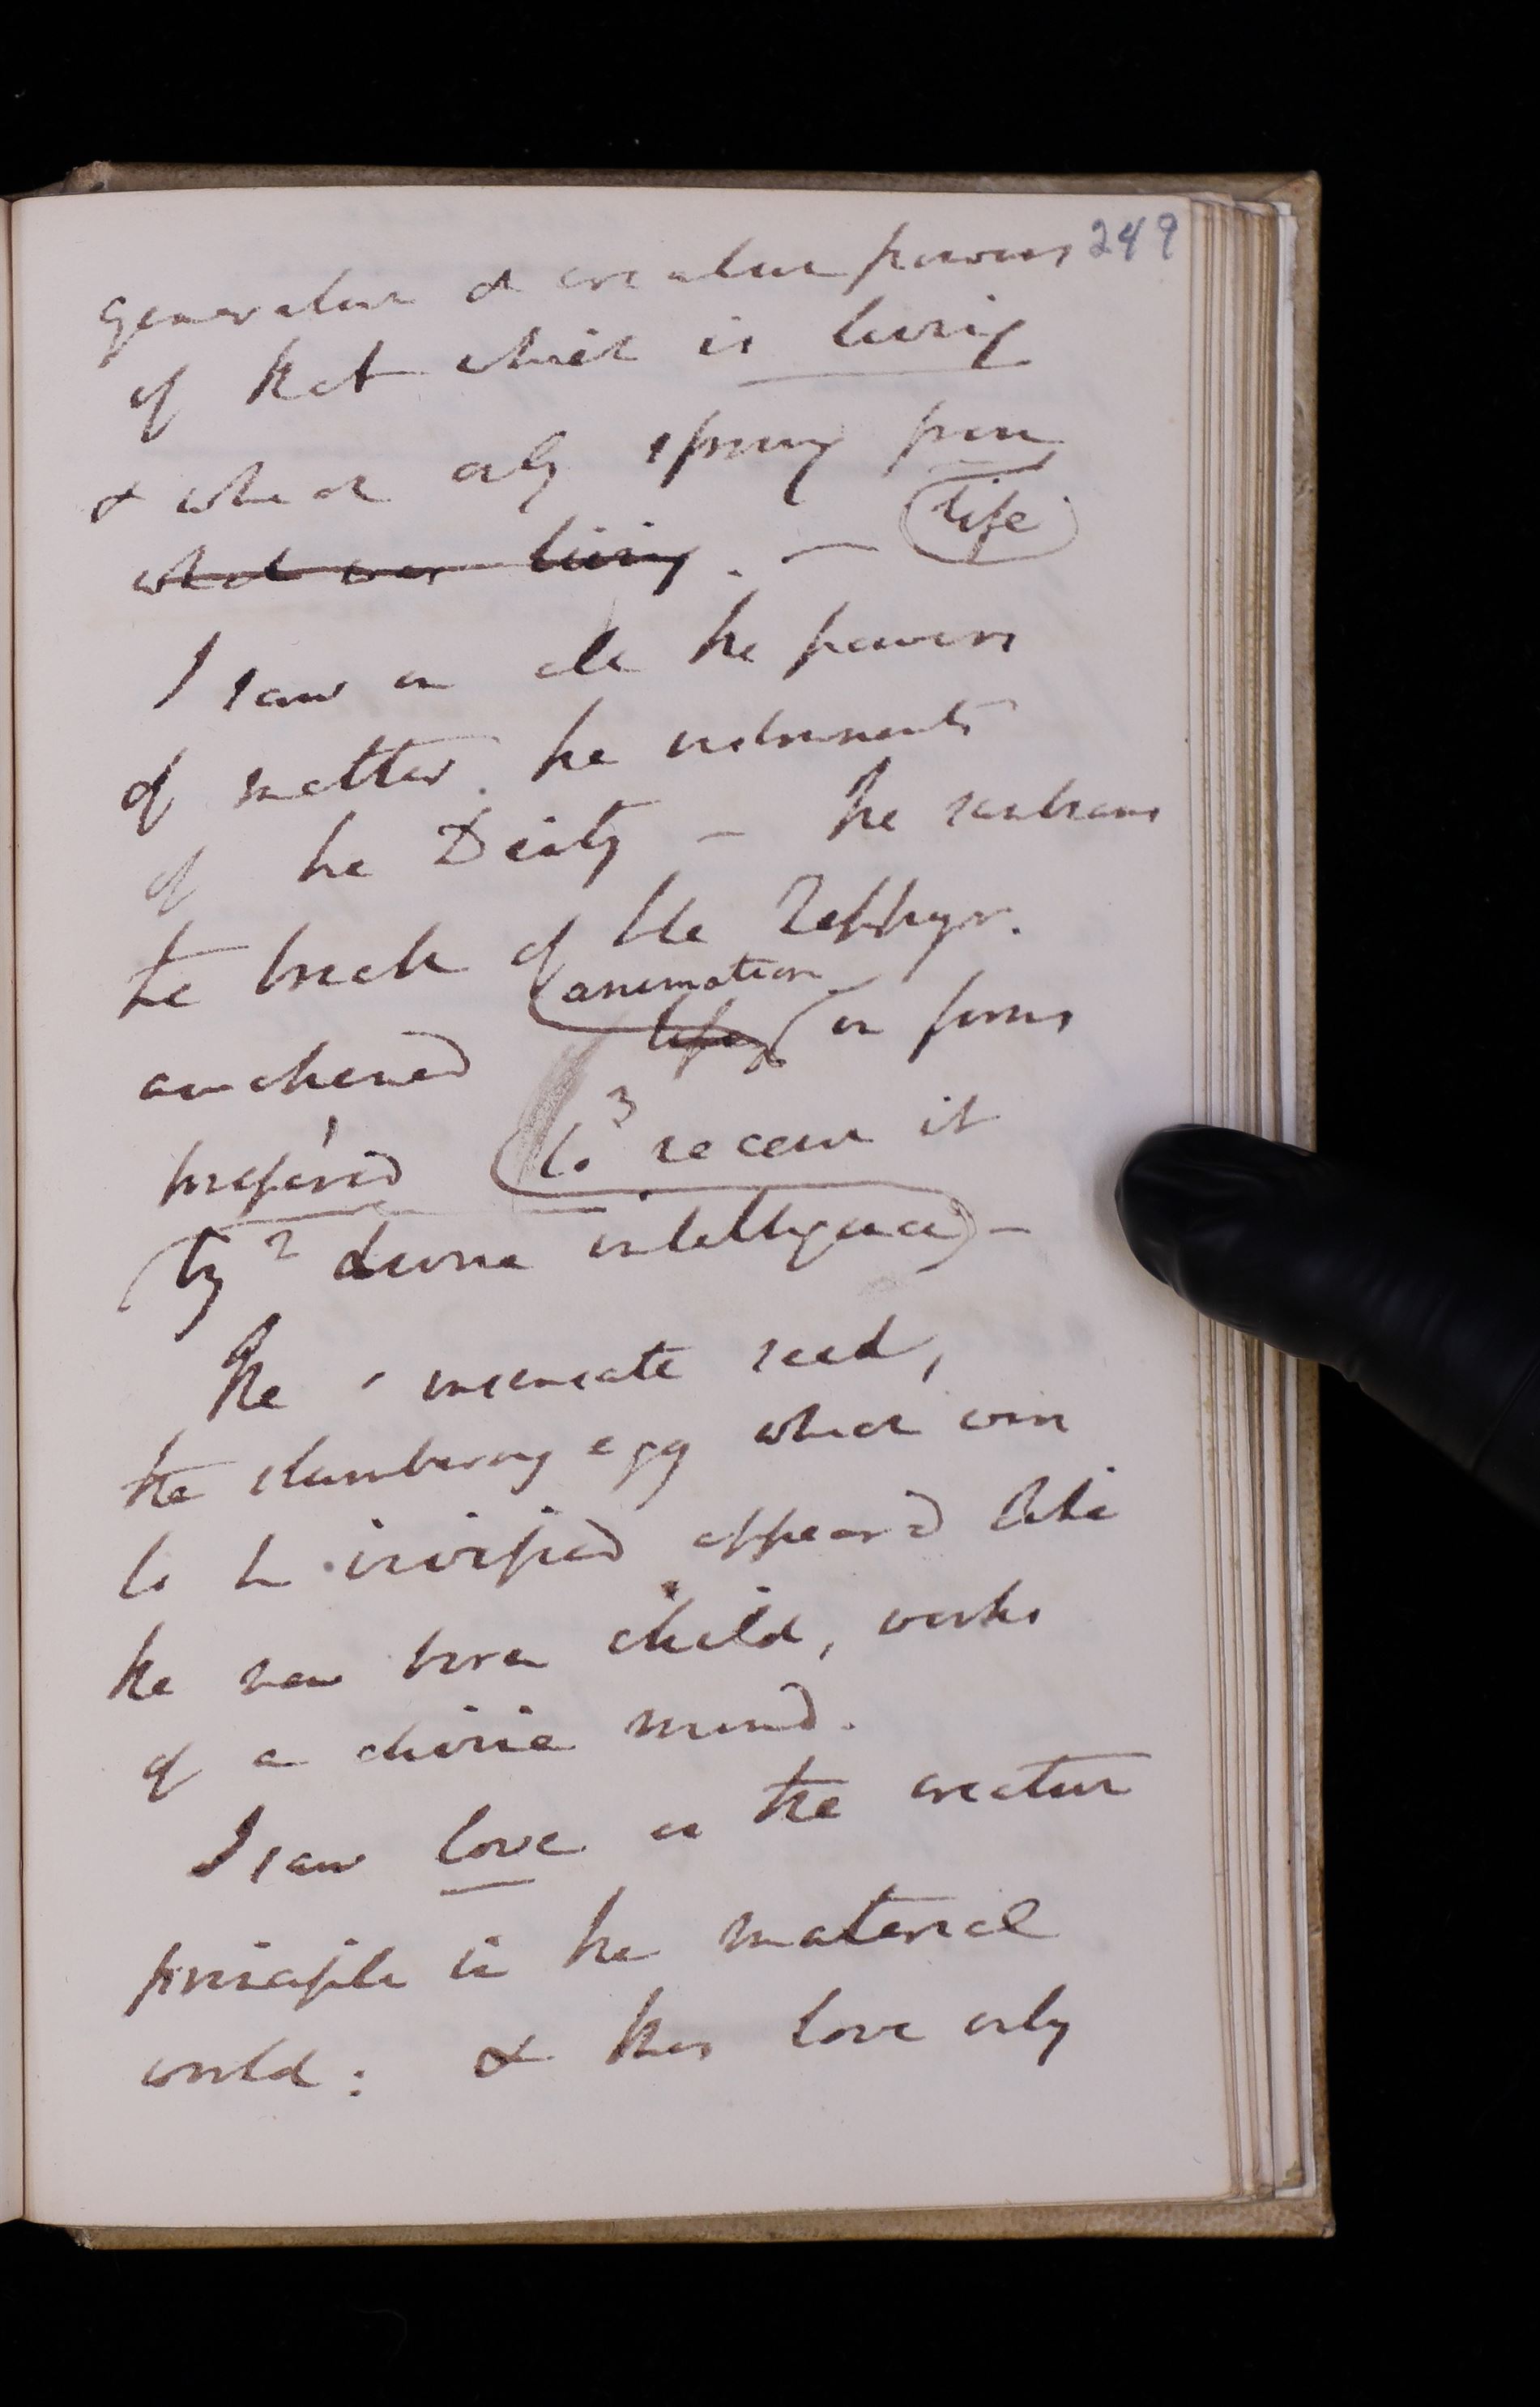 249
generative & creative powers
of that which is living
& which only sprung from
what was living. — life
I saw in all the powers
of matter the instruments
of the Deity – the sunbeams
the breath of the Zephyr.
animation
awakened life in forms
prepared 1 to 3 receive it
by 2 divine intelligence –
The insensate seed,
the slumbering egg which were
to be vivified appeared like
the new born child, works
of a divine mind.
I saw love as the creative
principle in the material
world: & this love only